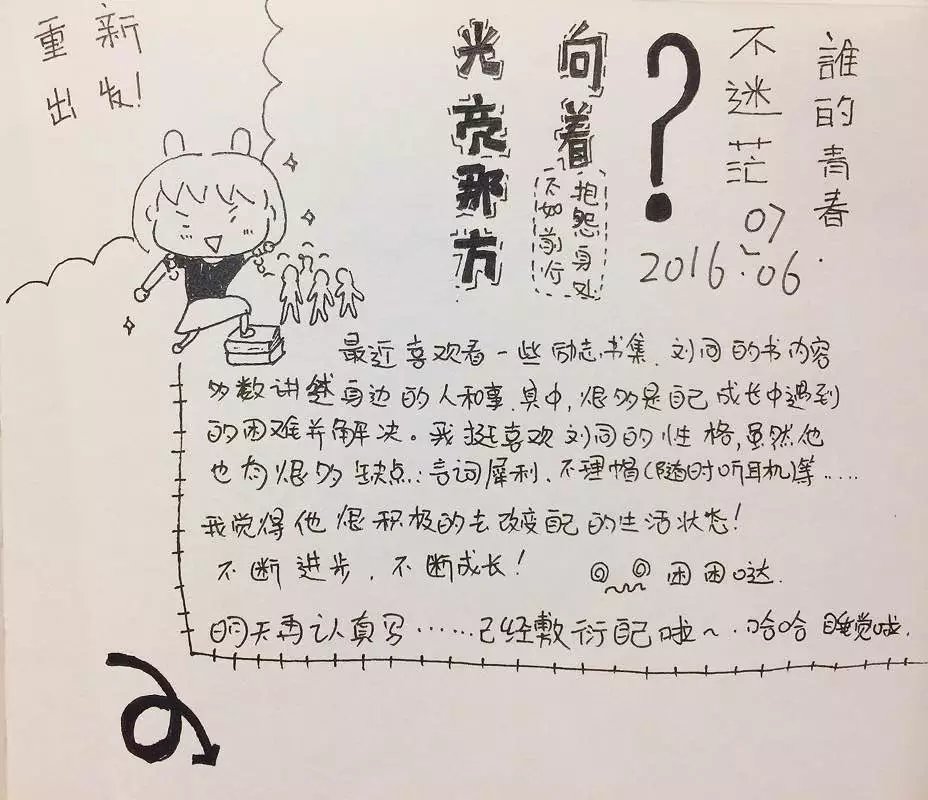 重新
出发!
誰的青春
不迷茫
?
向着
光亮那方
抱怨身处
不如前行
07
2016.06.
最近喜欢看一些励志书集.刘同的书内容
多数讲述身边的人和事.其中,很多是自己成长中遇到
的困难并解决。我挺喜欢刘同的性格,虽然他
也有很多缺点:言词犀利、不理帽(随时听耳机)等.....
我觉得他很积极的去改变自己的生活状态!
不断进步.不断成长!
困困哒.
明天再认真写……已经敷衍自己啦~.哈哈 睡觉啦.